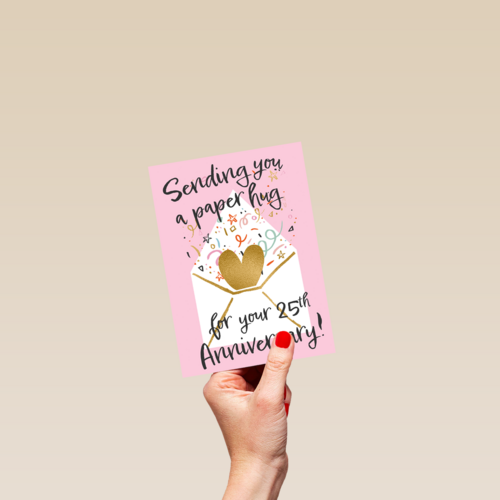 Sending you
a paper hug
for your 25th
Anniversary!